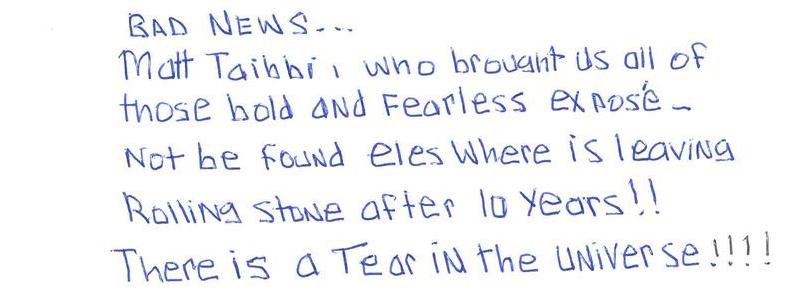 BAD NEWS...
Matt Taibbi, who brought us all of
those bold and Fearless exposé -
Not be found eles where is leaving
Rolling Stone after 10 years!!
There is a Tear in the universe!!!!